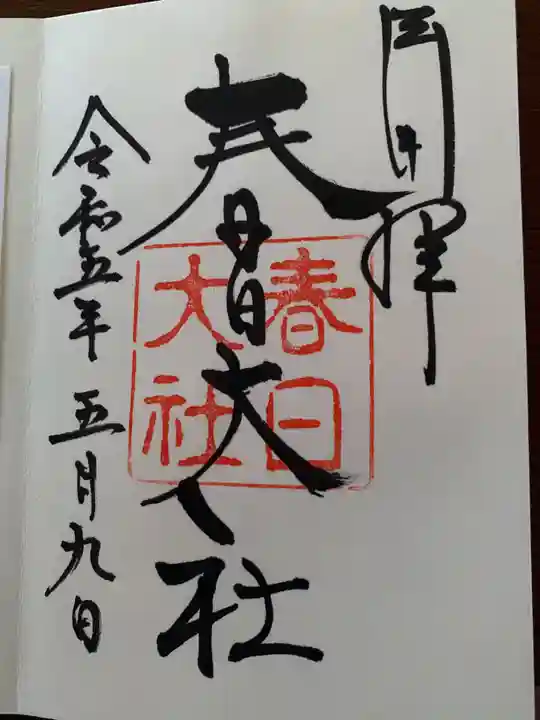 奉拝
春日大社
春日
大社
令和五年五月九日